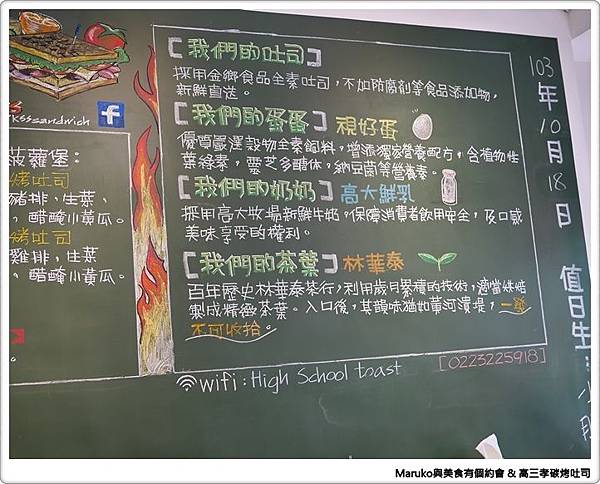 ksssandwich
菠蘿堡：
烤吐司
豬排、生菜、
、醋醃小黃瓜。
烤吐司
雞排、生菜
、醋醃小黃瓜。
[我們的吐司]
採用金鄉食品全素吐司，不加防腐劑等食品添加物，
新鮮直送。
[我們的蛋蛋] 視好蛋
優質嚴選穀物全素飼料，增添獨家營養配方，含植物性
葉綠素，靈芝多醣体，納豆菌等營養素。
[我們的奶奶] 高大鮮乳
採用高大牧場新鮮牛奶。保障消費者飲用安全，及口感
美味享受的權利。
[我們的茶葉] 林華泰
百年歷史林華泰茶行，利用歲月累積的技術，適當烘焙
製成精緻茶葉。入口後，其韻味猶如黃河潰堤，一發
不可收拾。
wifi：High School toast
[0223225918]
103年10月18日 值日生：小
Maruko與美食有個約會 & 高三孝碳烤吐司